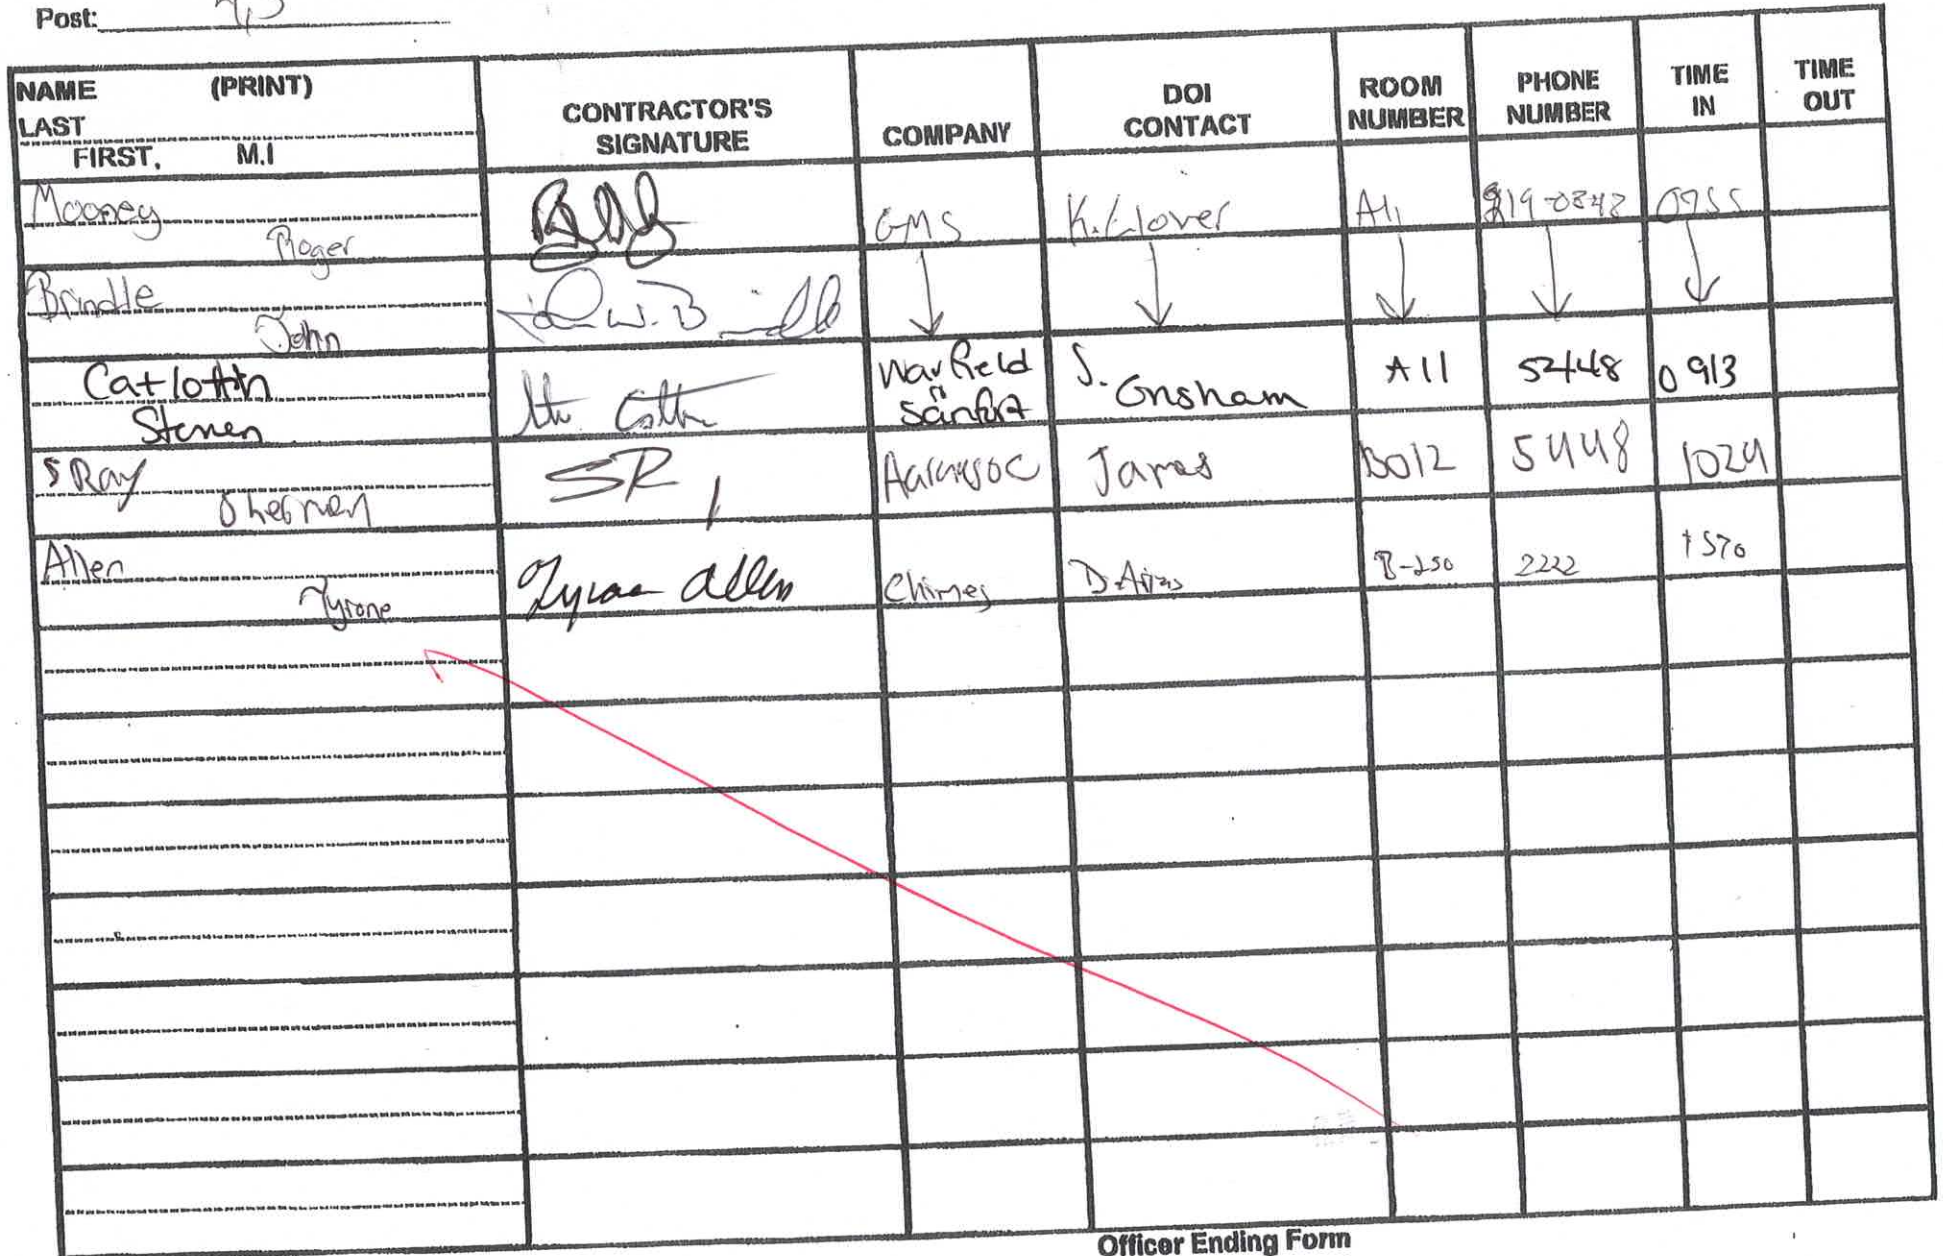 Post:
NAME (PRINT)
LAST
FIRST, M.I
CONTRACTOR'S
SIGNATURE
COMPANY
DOI
CONTACT
ROOM
NUMBER
PHONE
NUMBER
TIME
IN
TIME
OUT
Mooney
Roger
GMS
K. Glover
A11
0755
Brindle
John
John W. Brindle
Steven
Warfield
&
Sanford
S.
Grisham
A11
5448
0913
Ray
Sherman
SR
James
B012
5448
1024
Allen
Tyrone
Tyrone Allen
Chimes
2222
Officer Ending Form